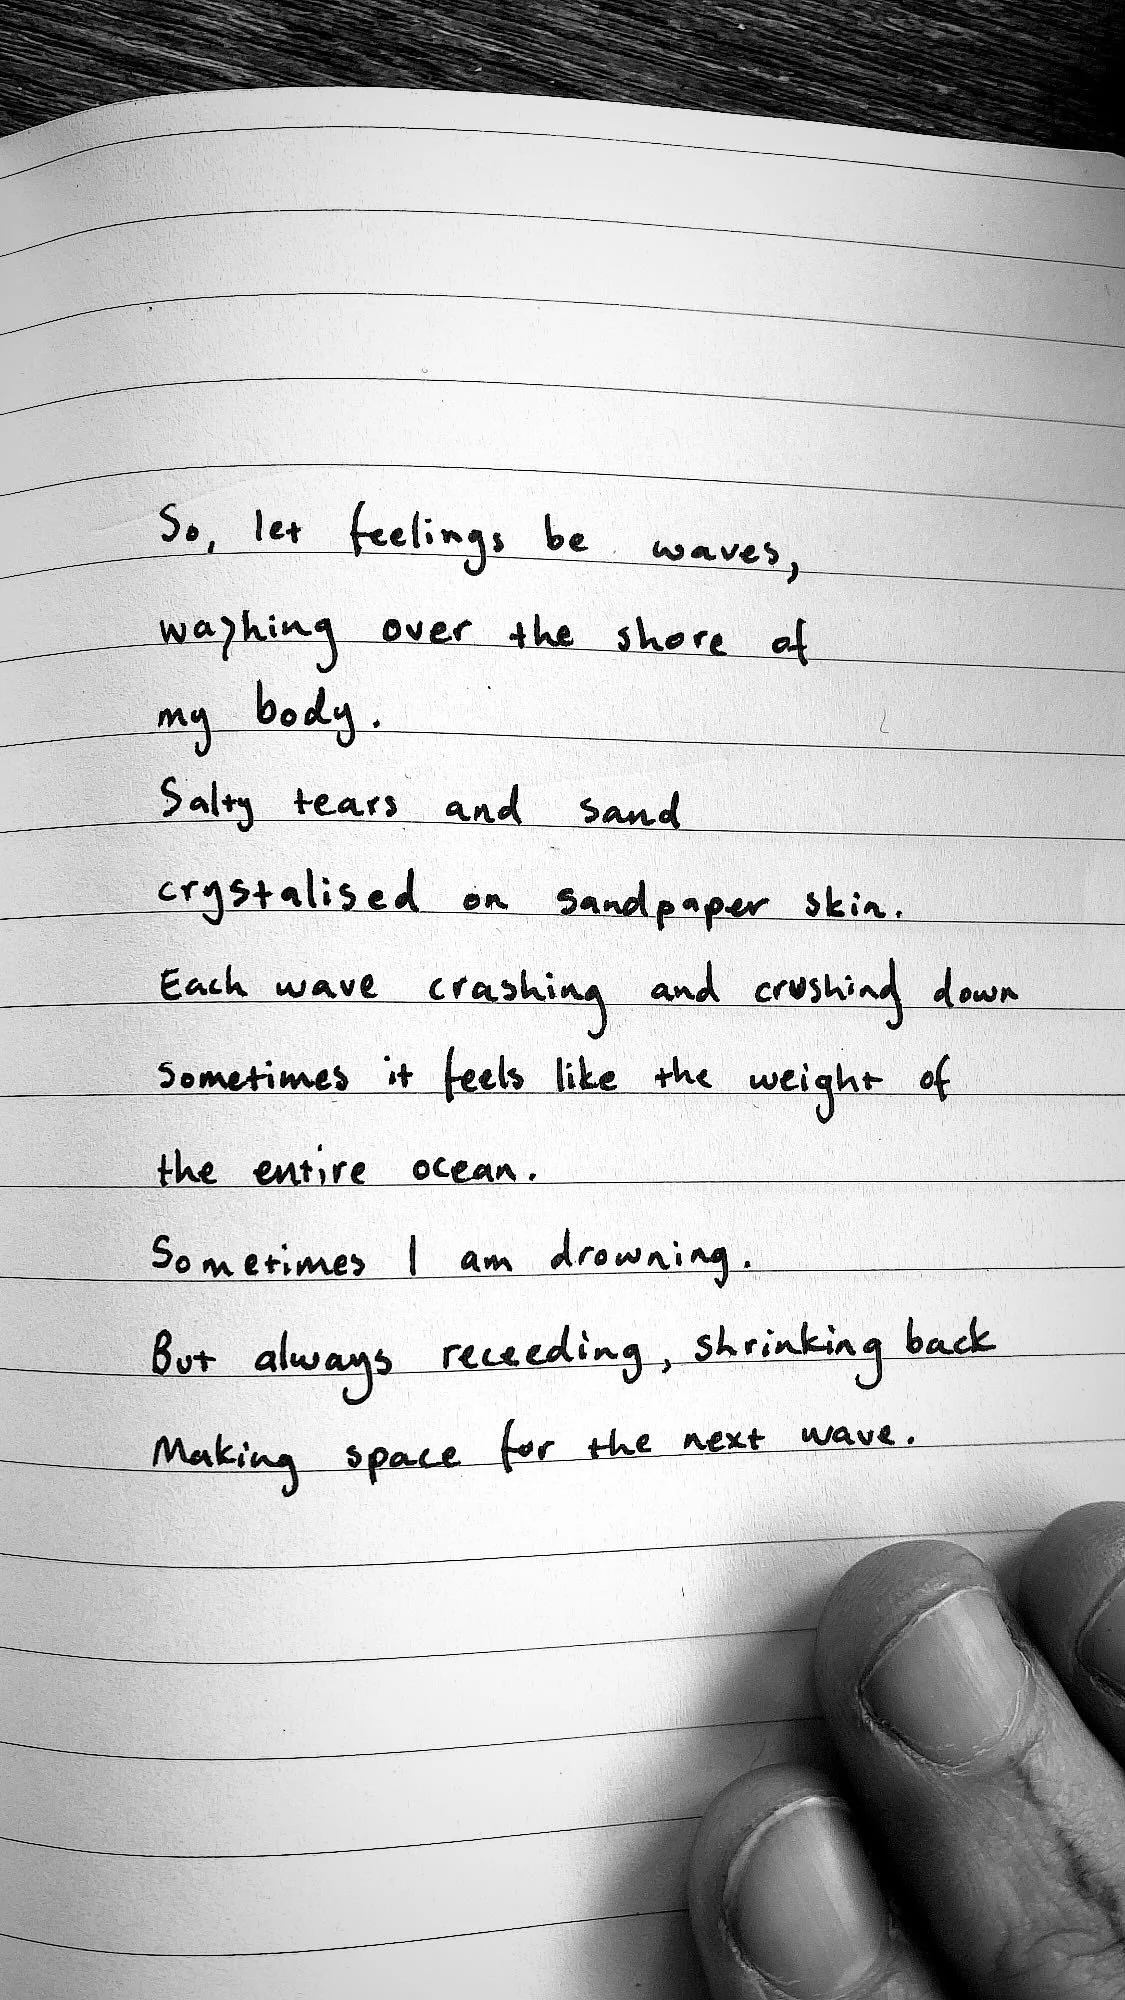 So, let feelings be waves,
washing over the shore of
my body.
Salty tears and sand
crystalised on sandpaper skin.
Each wave crashing and crushing down
sometimes it feels like the weight of
the entire ocean.
Sometimes I am drowning.
But always receeding, shrinking back
Making space for the next wave.